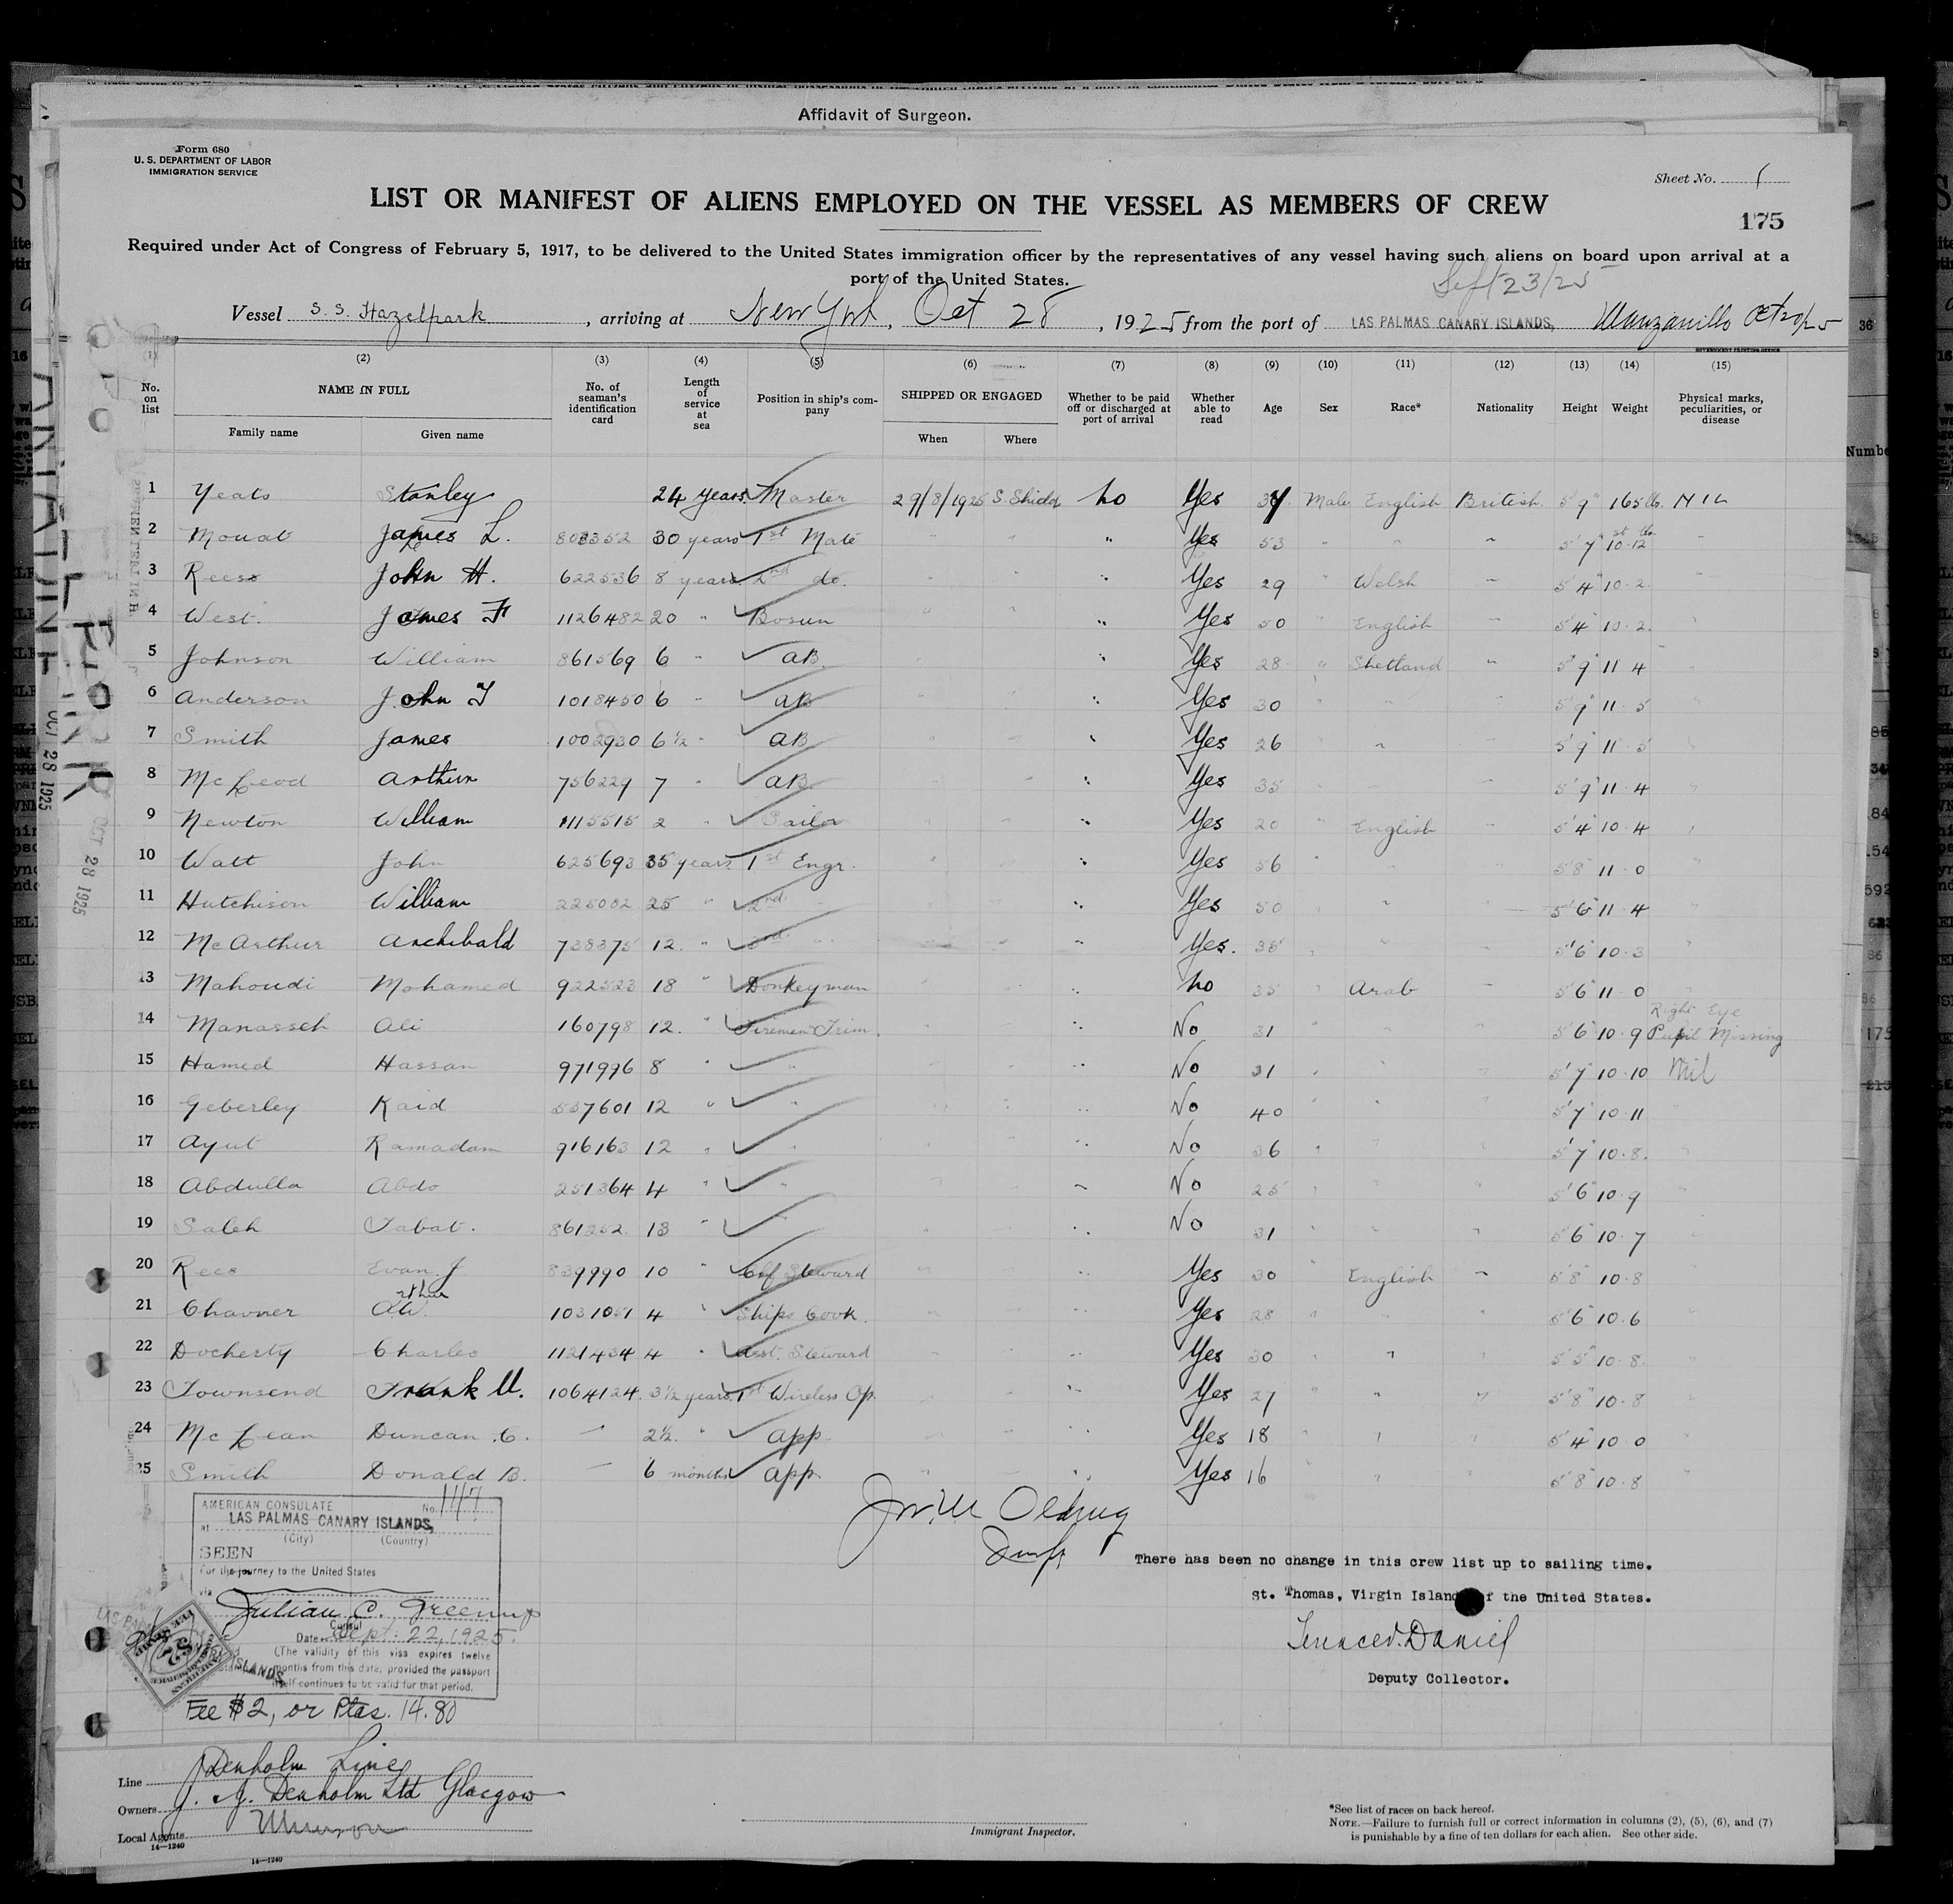 Affidavit of Surgeon.
Form 680
U. S. DEPARTMENT OF LABOR
IMMIGRATION SERVICE
Sheet No. 1
LIST OR MANIFEST OF ALIENS EMPLOYED ON THE VESSEL AS MEMBERS OF CREW
175
Required under Act of Congress of February 5, 1917, to be delivered to the United States immigration officer by the representatives of any vessel having such aliens on board upon arrival at a
port of the United States.
Sept 23/25
Vessel S. S. Hazelpark, arriving at New York, Oct 28, 1925 from the port of LAS PALMAS CANARY ISLANDS, Manzanillo Oct 20/25
GOVERNMENT PRINTING OFFICE
(1) (2) (3) (4) (5) (6) (7) (8) (9) (10) (11) (12) (13) (14) (15)
No. on list NAME IN FULL Family name Given name No. of seaman's identification card Length of service at sea Position in ship's company SHIPPED OR ENGAGED When Where Whether to be paid off or discharged at port of arrival Whether able to read Age Sex Race* Nationality Height Weight Physical marks, peculiarities, or disease
1 Yeats Stanley 24 years Master 29/8/1925 S. Shields No Yes Male English British 5' 9" 165 lb. NIL
2 Mouat James L. 30 years 1st Mate " " " Yes 53 " " " 5' 7" 10 st 12 lbs
3 Rees John H. 622536 8 years 2nd do. " Yes 29 " Welsh " 5' 4" 10-2
4 West James F 1126482 20 " Bosun " Yes 50 " English " 5' 4" 10-2
5 Johnson William 861569 6 " AB " Yes 28 " Shetland " 5' 9" 11 4
6 Anderson John T 1018450 6 " AB " Yes 30 " " 5' 9" 11-5
7 Smith James 1002930 6½ " AB " Yes 26 " " 5' 9" 11-5
8 McLeod Arthur 756229 7 " AB " Yes 35 5' 9" 11-4
9 Newton William 1115515 2 " Sailor " Yes 20 " English " 5' 4" 10-4
10 Watt John 625693 35 years 1st Engr. " Yes 56 " 5' 8" 11-0
11 Hutchison William 225002 25 " 2nd " " Yes 50 " " 5' 6" 11-4
12 McArthur Archibald 738375 12 " 3rd " " Yes. 35 " " 5' 6" 10-3
13 Mahoudi Mohamed 922523 18 " Donkeyman " No 35 " Arab " 5' 6" 11-0
14 Manasseh Ali 160798 12 " Firemen Trim. " No 31 " " 5' 6" 10-9 Right Eye Pupil Missing
15 Hamed Hassan 971996 8 " " " No 31 " " 5' 7" 10-10 Nil
16 Geberley Kaid 537601 12 " " " No 40 " " 5' 7" 10-11
17 Ayut Ramadan 916163 12 " " " No 36 " " 5' 7" 10-8
18 Abdulla Abdo 251364 4 " " " No 25 " " 5' 6" 10-9
19 Saleh Tabat. 861252 13 " " " No 31 " " 5' 6" 10-7
20 Rees Evan J 839990 10 " Chf Steward " Yes 30 " English " 5' 8" 10-8
21 Chavner Arthur W. 1031051 4 " Ships Cook " Yes 28 " 5' 6" 10-6
22 Docherty Charles 1121434 4 " Asst. Steward " Yes 30 " " 5' 5" 10-8
23 Townsend Frank U. 1064124 3½ years 1st Wireless Op. " Yes 27 " " " 5' 8" 10-8
24 McLean Duncan C. — 2½ " App " Yes 18 " " 5' 4" 10-0
25 Smith Donald B. — 6 months App " Yes 16 " " 5' 8" 10-8
OCT 28 1925
OCT 28 1925
AMERICAN CONSULATE No. 147
at LAS PALMAS CANARY ISLANDS,
(City) (Country)
SEEN
For the journey to the United States
via
Julian C. Greenup
Consul
Date Sept. 22, 1925.
(The validity of this visa expires twelve
months from this date, provided the passport
itself continues to be valid for that period.
Fee $2, or Ptas. 14.80
There has been no change in this crew list up to sailing time.
St. Thomas, Virgin Islands of the United States.
Daniel
Deputy Collector.
Line Denholm Line
Owners J. & J. Denholm Ltd Glasgow
Local Agents Munson
14—1240
14—1240
Immigrant Inspector.
*See list of races on back hereof.
NOTE.—Failure to furnish full or correct information in columns (2), (5), (6), and (7)
is punishable by a fine of ten dollars for each alien. See other side.